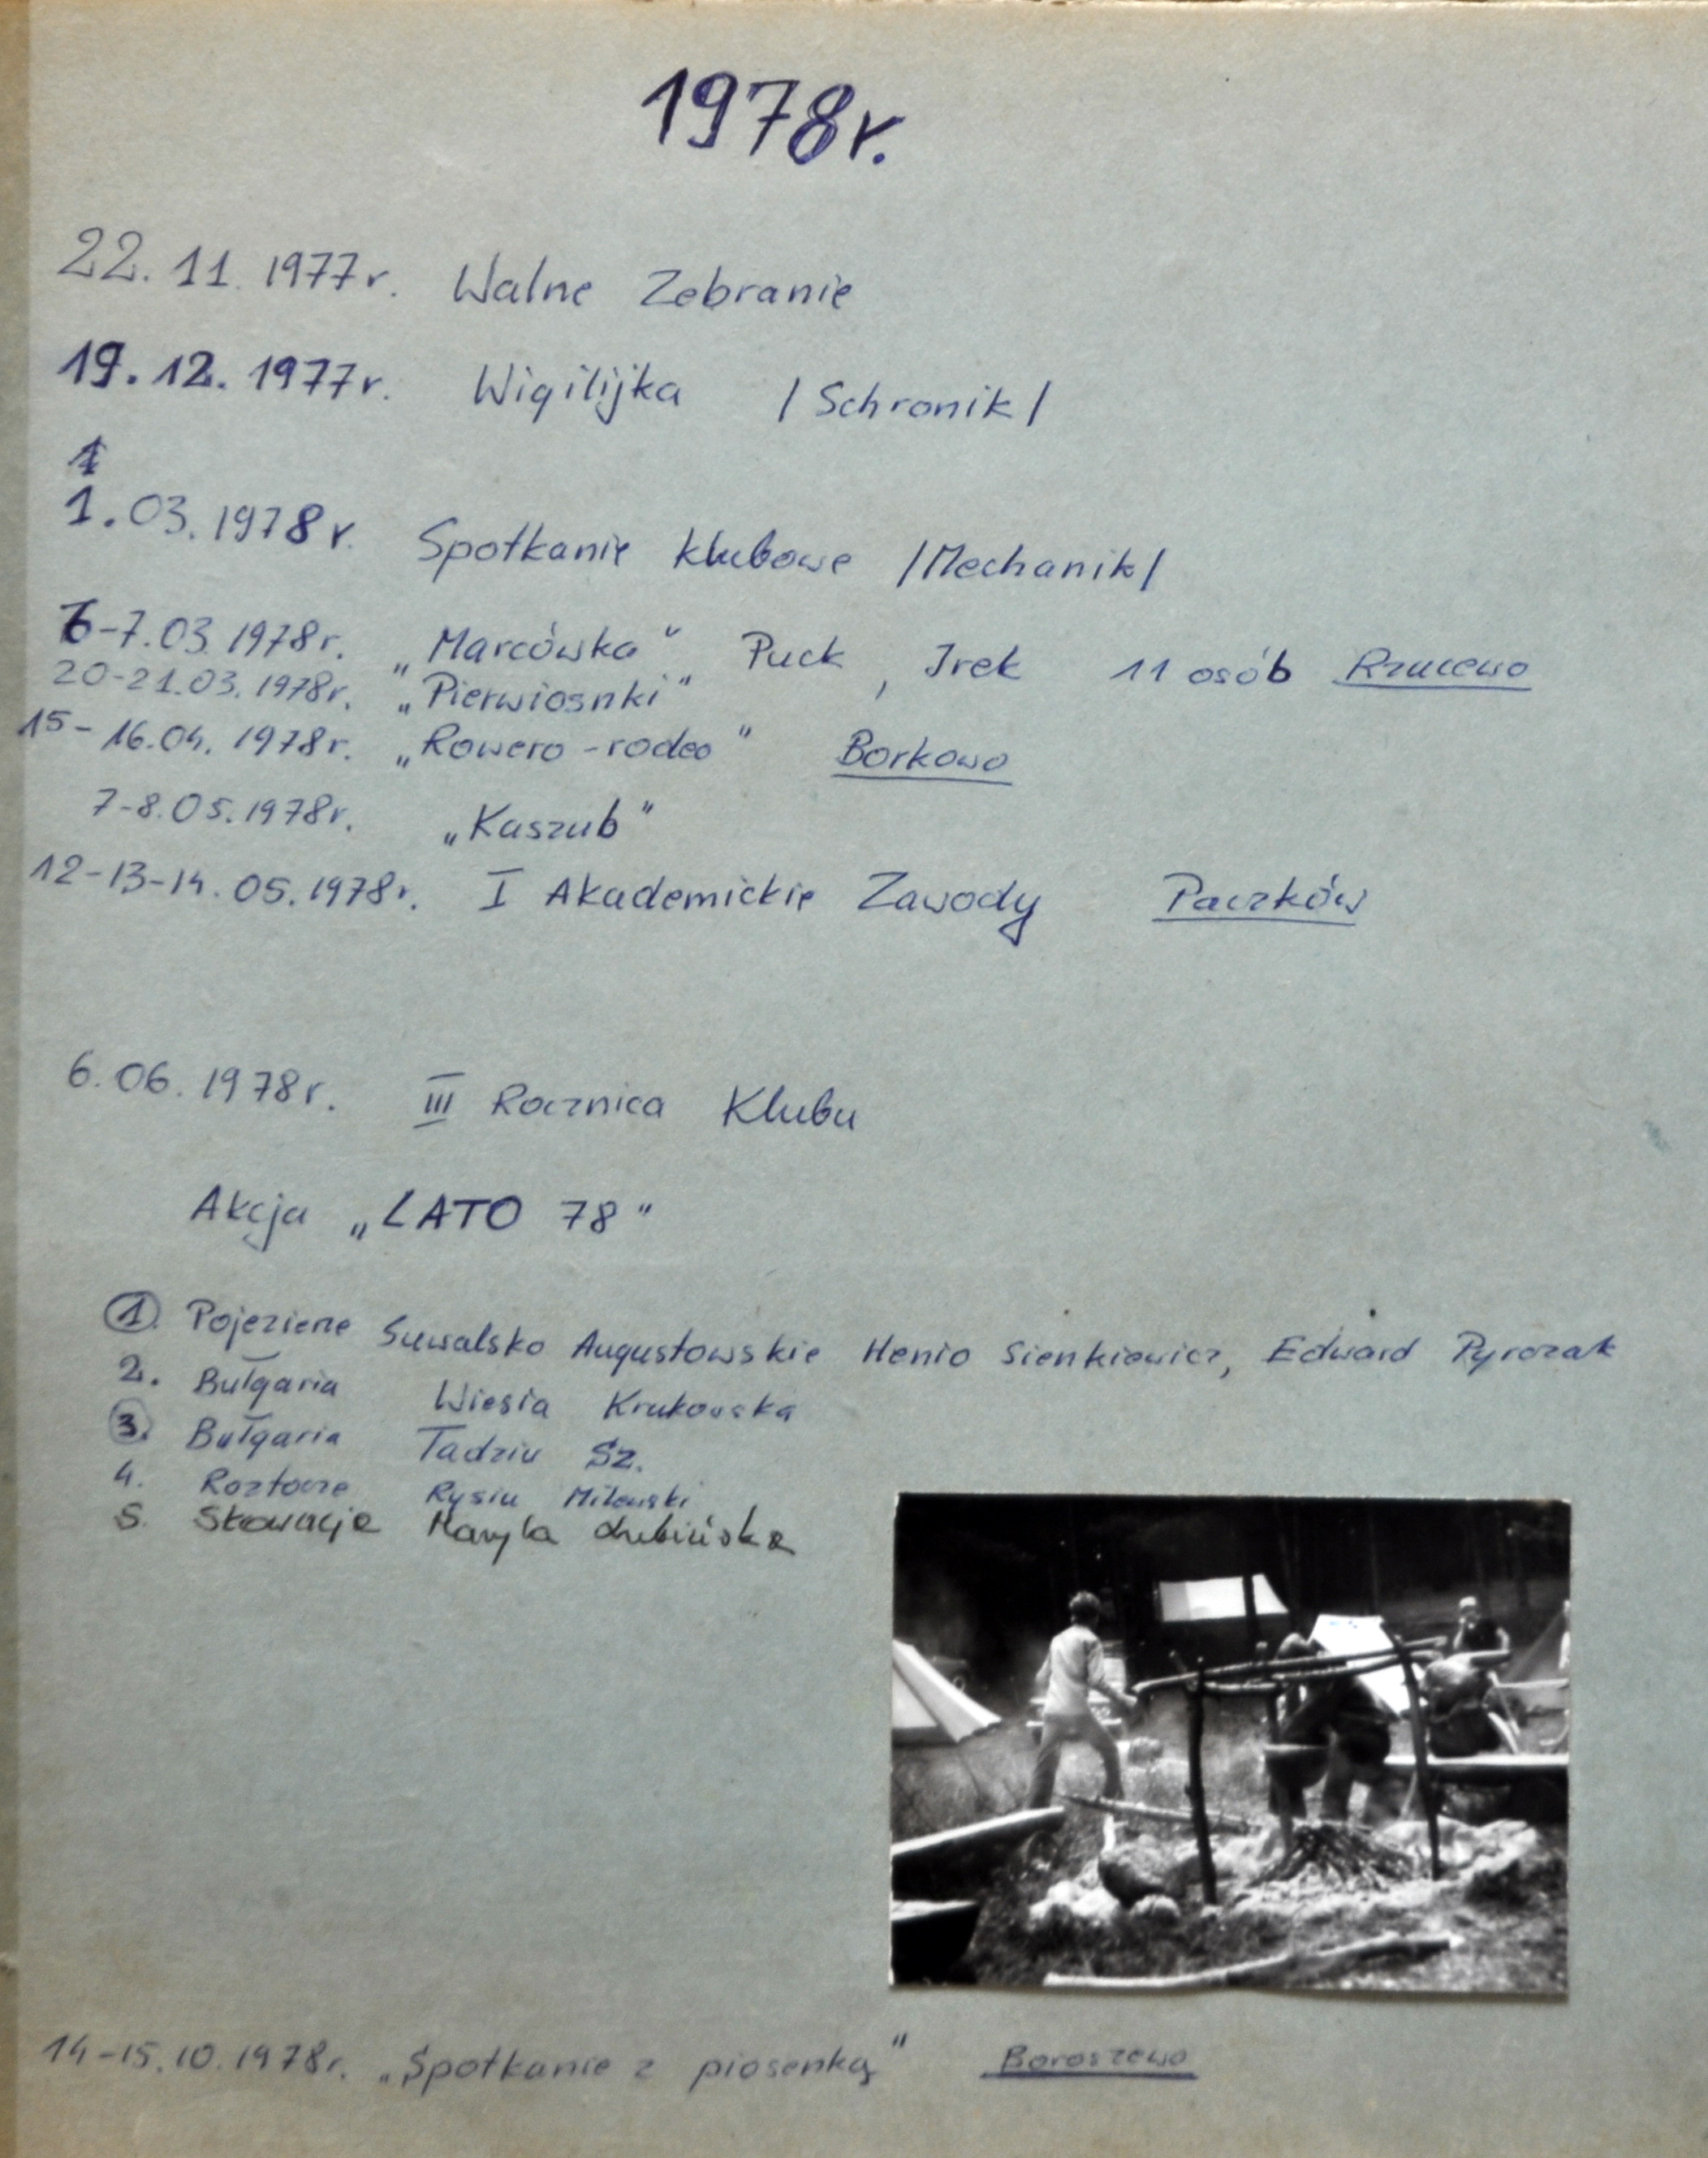 1978r.
22.11.1977r. Walne Zebranie
19.12.1977r. Wigilijka /Schronik/
1.03.1978r. Spotkanie klubowe /Mechanik/
6-7.03.1978r. „Marcówka" Puck, Irek 11 osób Rzucewo
20-21.03.1978r. „Pierwiosnki"
15-16.04.1978r. „Rowero-rodeo" Borkowo
7-8.05.1978r. „Kaszub"
12-13-14.05.1978r. I Akademickie Zawody Paczków
6.06.1978r. III Rocznica Klubu
Akcja „LATO 78"
1. Pojezierze Suwalsko Augustowskie Henio Sienkiewicz, Edward Pyrozak
2. Bułgaria Wiesia Krukowska
3. Bułgaria Tadziu Sz.
4. Roztocze Rysiu Milewski
5. Maryla Lubińska
14-15.10.1978r. „Spotkanie z piosenką" Boroszewo